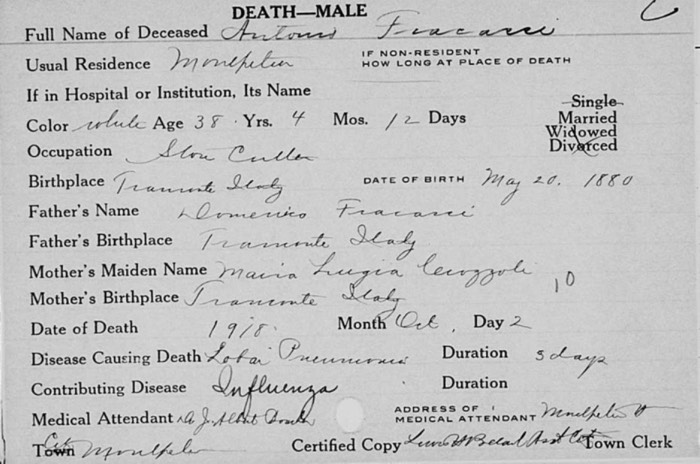 DEATH—MALE
Full Name of Deceased Antonio Fracassi
Usual Residence Montpelier IF NON-RESIDENT HOW LONG AT PLACE OF DEATH
If in Hospital or Institution, Its Name
Color white Age 38 Yrs. 4 Mos. 12 Days Single Married Widowed Divorced
Occupation Stone Cutter
Birthplace Tramonte Italy DATE OF BIRTH May 20. 1880
Father's Name Domenico Fracassi
Father's Birthplace Tramonte Italy
Mother's Maiden Name Maria Lugia
Mother's Birthplace Tramonte Italy 10
Date of Death 1918. Month Oct. Day 2
Disease Causing Death Lobar Pneumonia Duration 5 days
Contributing Disease Influenza Duration
Medical Attendant ADDRESS OF MEDICAL ATTENDANT Montpelier Vt
Town City Montpelier Certified Copy Asst City Town Clerk